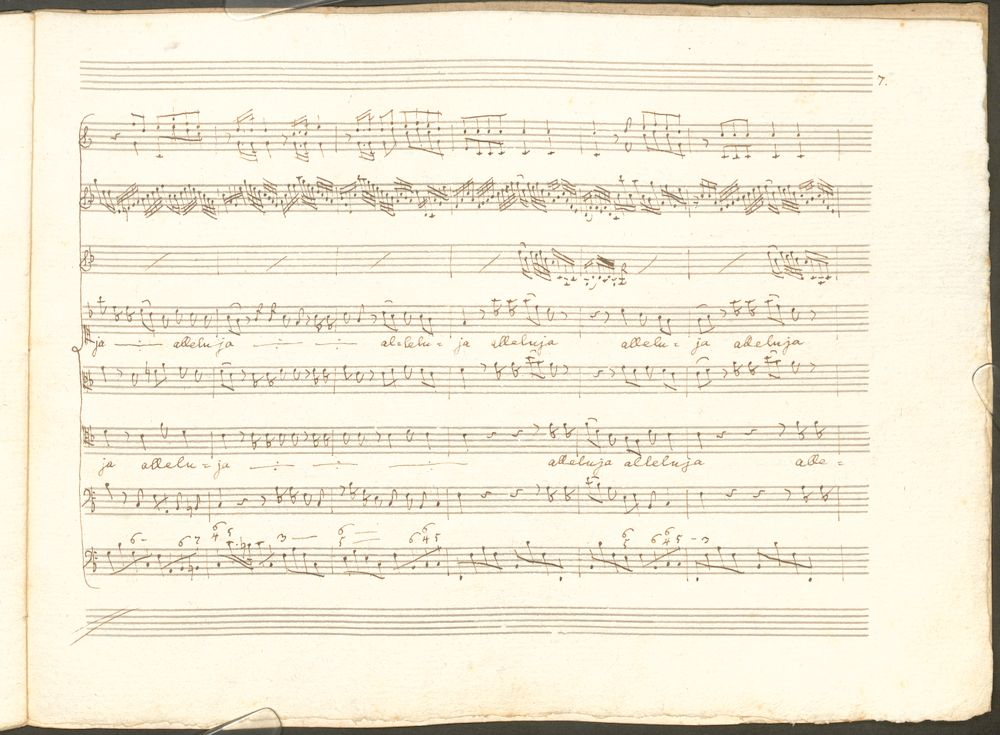 7.
ja — : — alleluja — : — — : — alelu = ja alleluja allelu = ja alleluja
ja allelu = ja — : — — : — — : — alleluja alleluja alle =
6 - 6 7 6 4 5 3 — 6 5 6 6 4 5 6 5 6 6 4 5 - 3